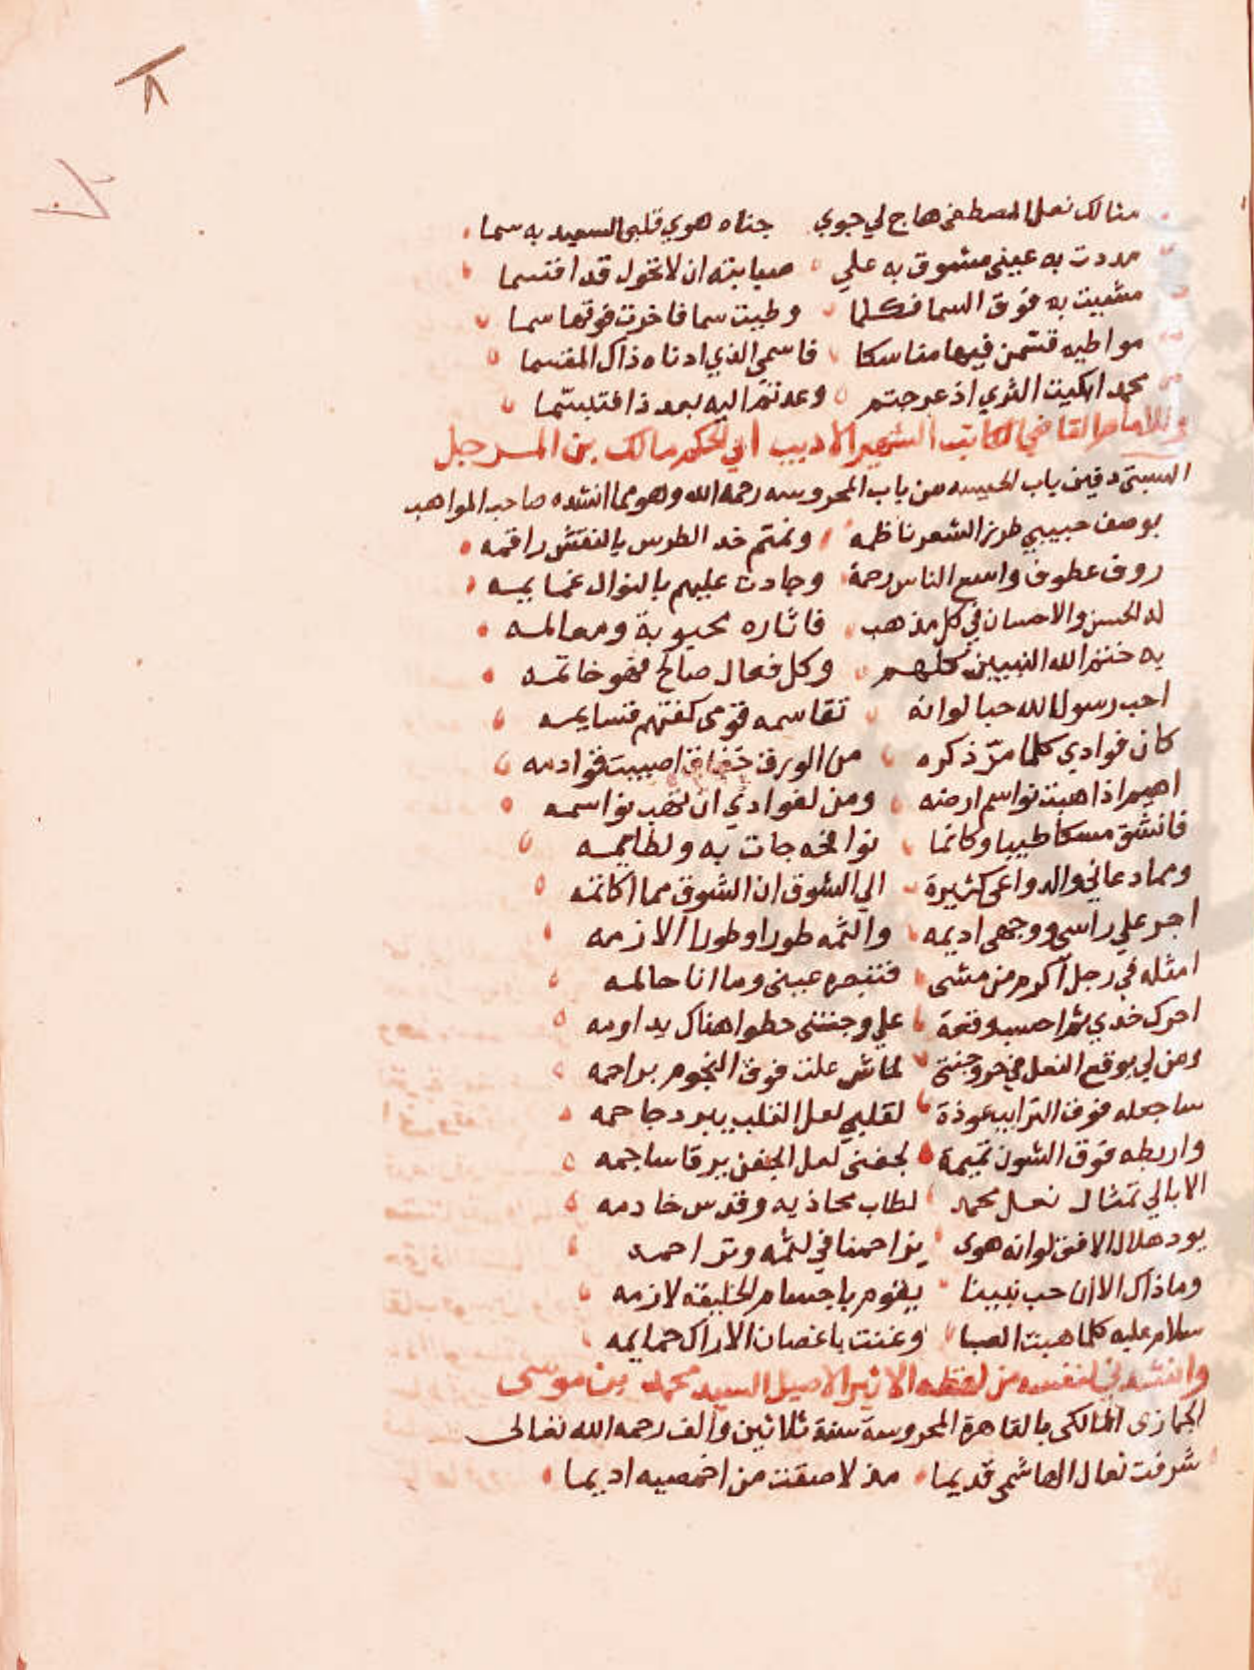 مثالك نعل المصطفى هاج لي جوي جناه هوي قلبي السعيد به سما
مددت به عيني مشوق به علي صبابته ان لا تحول قد اقتسما
مشيت به فوق السما فكلما وطيت سما فاخرت فوقها سما
مواطيه قسمن فيها مناسكا فاسمى الذي ادناه ذاك المقسما
محمد الثري اذ عرجتم وعدتم اليه بعد ذا
وللامام القاضي الكاتب الشهير الاديب ابي الحكم مالك بن المرحل
السبتي دفين باب الحبيسه من باب المحروسه رحمه الله وهو مما انشده صاحب المواهب
بوصف حبيبي طرز الشعر ناظمه ونمتم خد الطرس بالنقش راقمه
روف عطوف واسع الناس رحمة وجادت عليهم بالنوال غمايمه
له الحسن والاحسان في كل مذهب فاثاره محبوبة ومعالمه
به ختم الله النبيين كلهم وكل فعال صالح فهو خاتمه
احب رسول الله حبا لو انه تقاسمه قومى كفتهم قسايمه
كان فوادي كلما مرّ ذكره من الورق خفاق اصيبت قوادمه
اهيم اذا هبت نواسم ارضه ومن لفوادي ان تهب نواسمه
فانشق مسكا طيبا وكانما نوافحه جات به ولطايمه
ومما دعاني والدواعى كثيرة الي الشوق ان الشوق مما اكاتمه
اجر علي راسي ووجهى اديمه والثمه طورا وطورا الازمه
امثله في رجل اكرم من مشى فتبصره عينى وما انا حالمه
احرك خدي ثم احسب وقعة علي وجنتى خطوا هناك يداومه
ومن لي بوقع النعل في حر وجنتى لماش علت فوق النجوم براجمه
ساجعله فوق الترايب عوذة لقلبي لعل القلب يبرد جاحمه
واربطه فوق الشون تميمة لجفنى لعل الجفن يرقا ساجمه
الا بابي تمثال نعل محمد لطاب محاذيه وقدس خادمه
يود هلال الافق لو انه هوى يزاحمنا في لثمه ونزاحمه
وما ذاك الا ان حب نبينا يقوم باجسام الخليقة لازمه
سلام عليه كلما هبت الصبا وغنت باغصان الاراك حمايمه
وانشدني لنفسه من لفظه الاثير الاصيل السيد محمد بن موسى
الجمازى المالكى بالقاهرة المحروسة سنة ثلاثين والف رحمه الله تعالى
شرفت نعال الهاشمى قديما مذ لاصقت من اخمصيه اديما